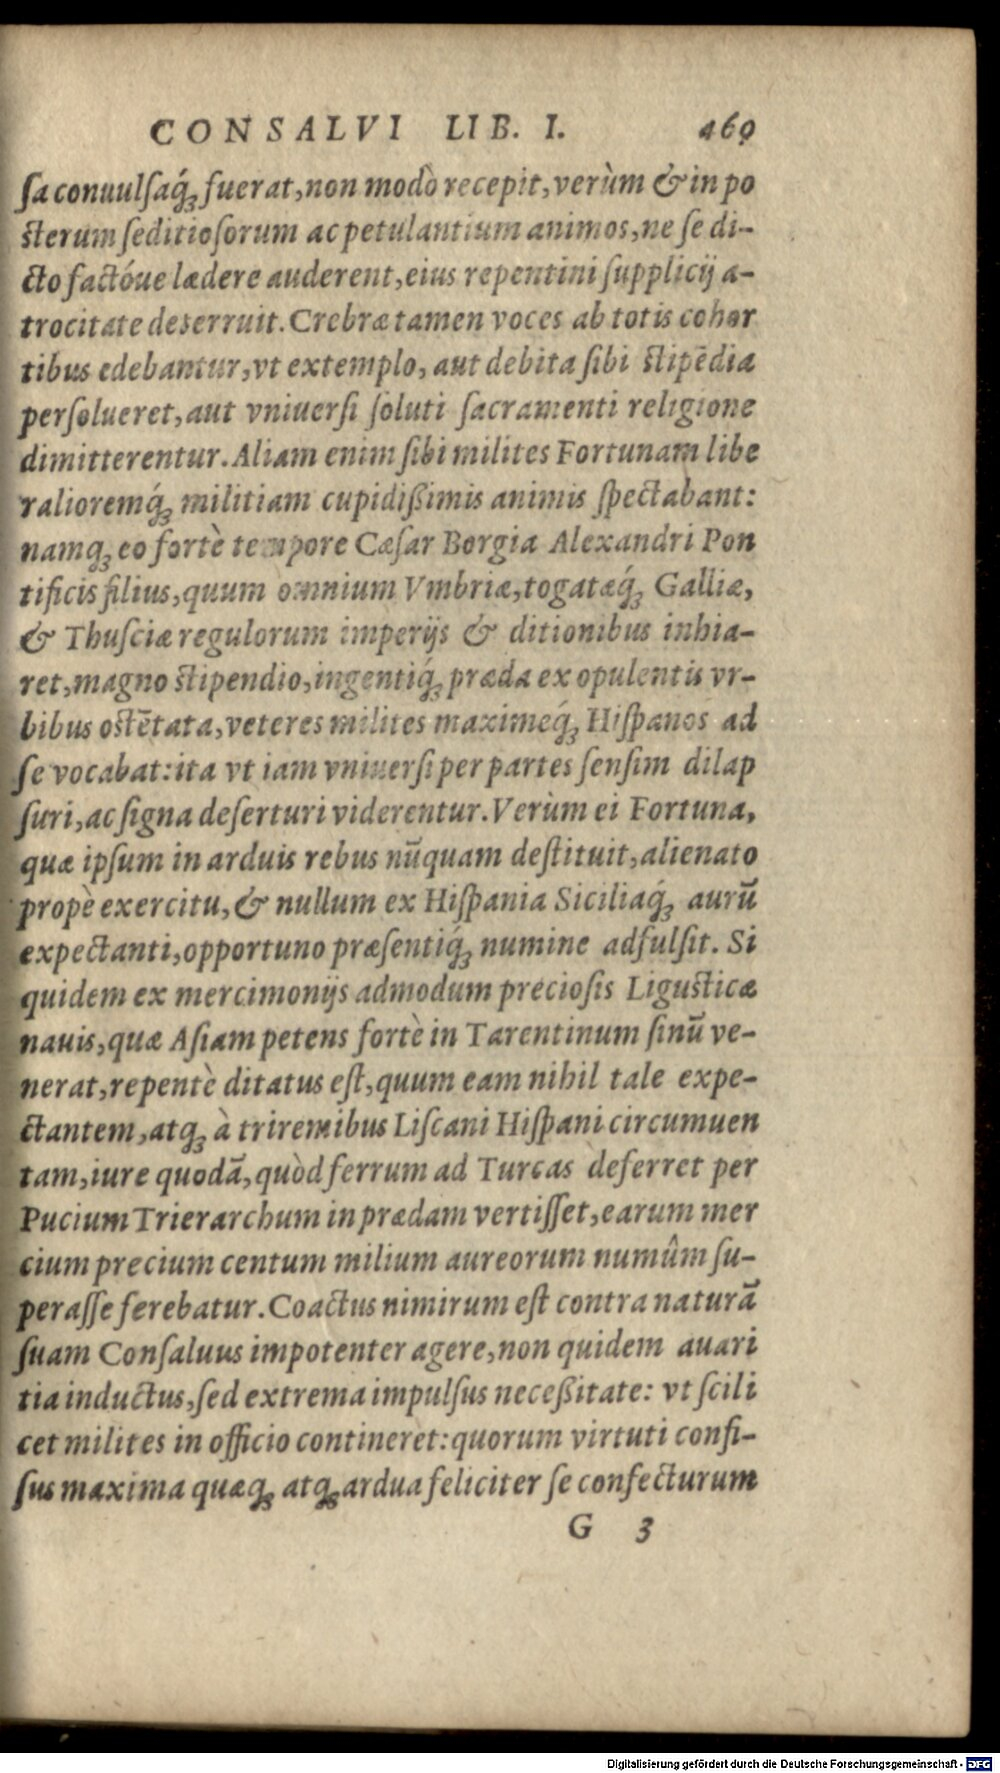 CONSALVI LIB. I. 469
ſa conuulſaq́; fuerat, non modò recepit, verùm & in po
sterum ſeditioſorum ac petulantium animos, ne ſe di-
cto factóue lædere auderent, eius repentini ſupplicij a-
trocitate deterruit. Crebræ tamen voces ab totis cohor
tibus edebantur, vt extemplo, aut debita ſibi stipēdia
perſolueret, aut vniuerſi ſoluti ſacramenti religione
dimitterentur. Aliam enim ſibi milites Fortunam libe
ralioremq́; militiam cupidißimis animis ſpectabant:
namq; eo fortè tempore Cæſar Borgia Alexandri Pon
tificis filius, quum omnium Vmbriæ, togatæq́; Galliæ,
& Thuſciæ regulorum imperijs & ditionibus inhia-
ret, magno stipendio, ingentiq́; præda ex opulentis vr-
bibus ostētata, veteres milites maximeq́; Hiſpanos ad
ſe vocabat: ita vt iam vniuerſi per partes ſenſim dilap
ſuri, ac ſigna deſerturi viderentur. Verùm ei Fortuna,
quæ ipſum in arduis rebus nūquam deſtituit, alienato
propè exercitu, & nullum ex Hiſpania Siciliaq́; aurū
expectanti, opportuno præſentiq́; numine adfulſit. Si
quidem ex mercimonijs admodum precioſis Ligusticæ
nauis, quæ Aſiam petens fortè in Tarentinum ſinū ve-
nerat, repentè ditatus eſt, quum eam nihil tale expe-
ctantem, atq; à triremibus Liſcani Hiſpani circumuen
tam, iure quodā, quòd ferrum ad Turcas deferret per
Pucium Trierarchum in prædam vertiſſet, earum mer
cium precium centum milium aureorum numûm ſu-
peraſſe ferebatur. Coactus nimirum eſt contra naturā
ſuam Conſaluus impotenter agere, non quidem auari
tia inductus, ſed extrema impulſus neceßitate: vt ſcili
cet milites in officio contineret: quorum virtuti confi-
ſus maxima quæq; atq; ardua feliciter ſe confecturum
G 3
Digitalisierung gefördert durch die Deutsche Forschungsgemeinschaft - DFG